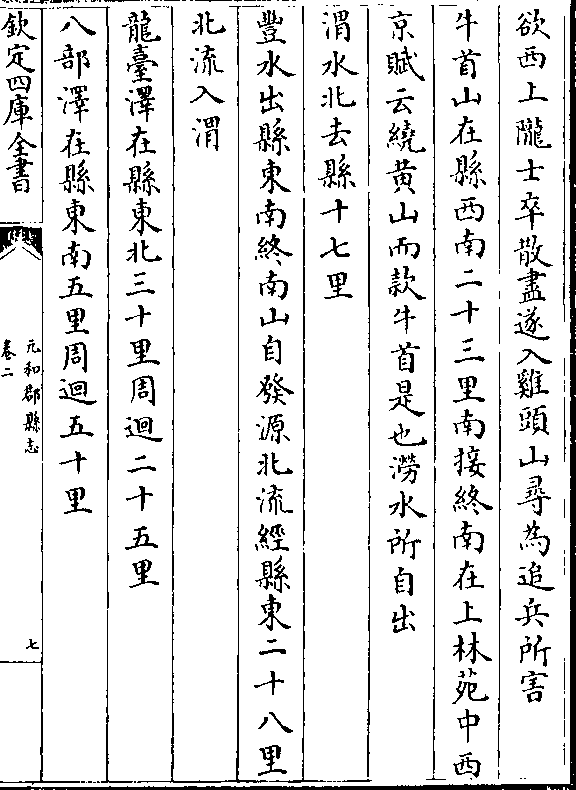 欲西上隴士卒散盡遂入雞頭山尋為追兵所害
牛首山在縣西南二十三里南接終南在上林苑中西
京賦云繞黄山而款牛首是也澇水所自出
渭水北去縣十七里
豐水出縣東南終南山自發源北流經縣東二十八里
北流入渭
龍臺澤在縣東北三十里周迴二十五里
八部澤在縣東南五里周迴五十里
欽定四庫全書
元和郡縣志
卷二
七